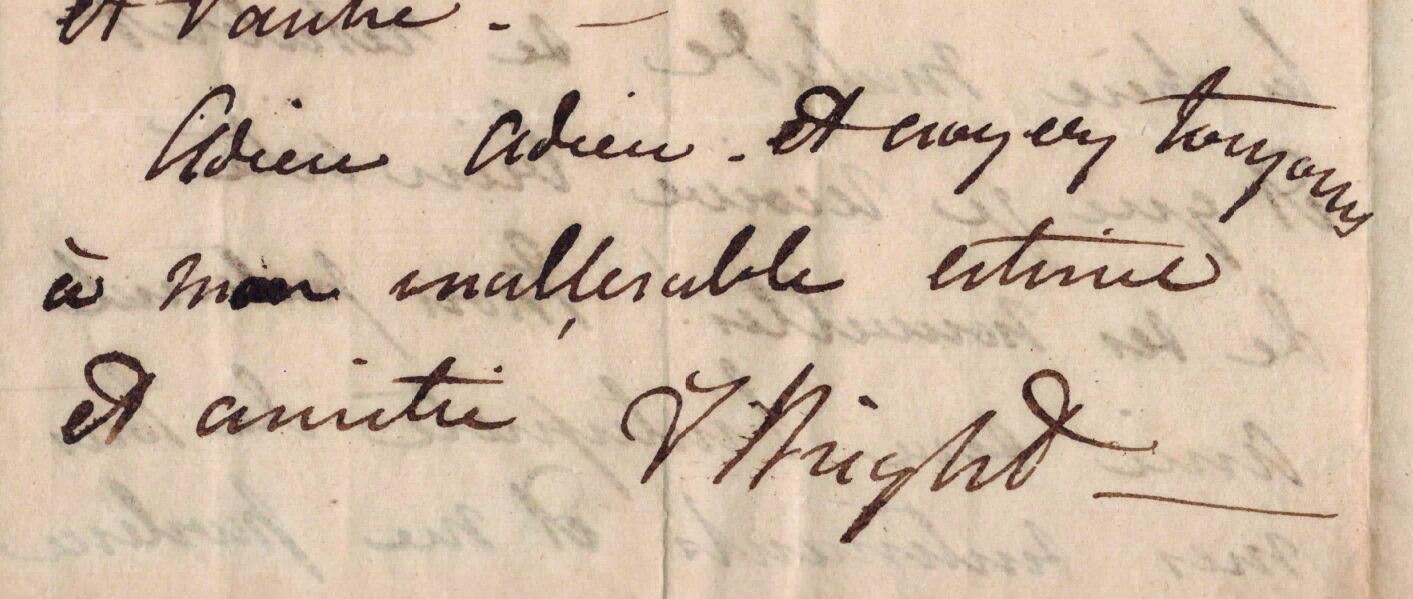 et l'autre . —
Adieu Adieu . et croyez toujours
à mon inallterable estime
et amitié V Wright —